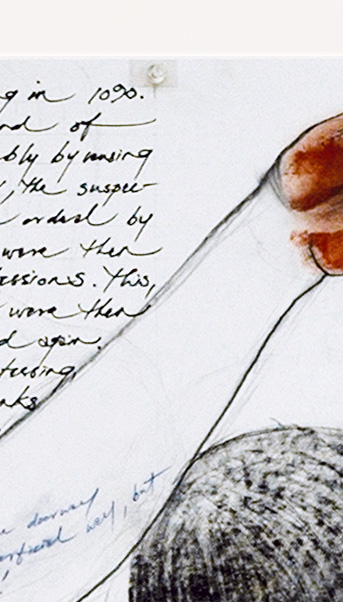 g in 1090.
nd of
bly by using
, the suspec-
ordeal by
were then
essions. This,
were then
d again.
nks
e doorway
way, but